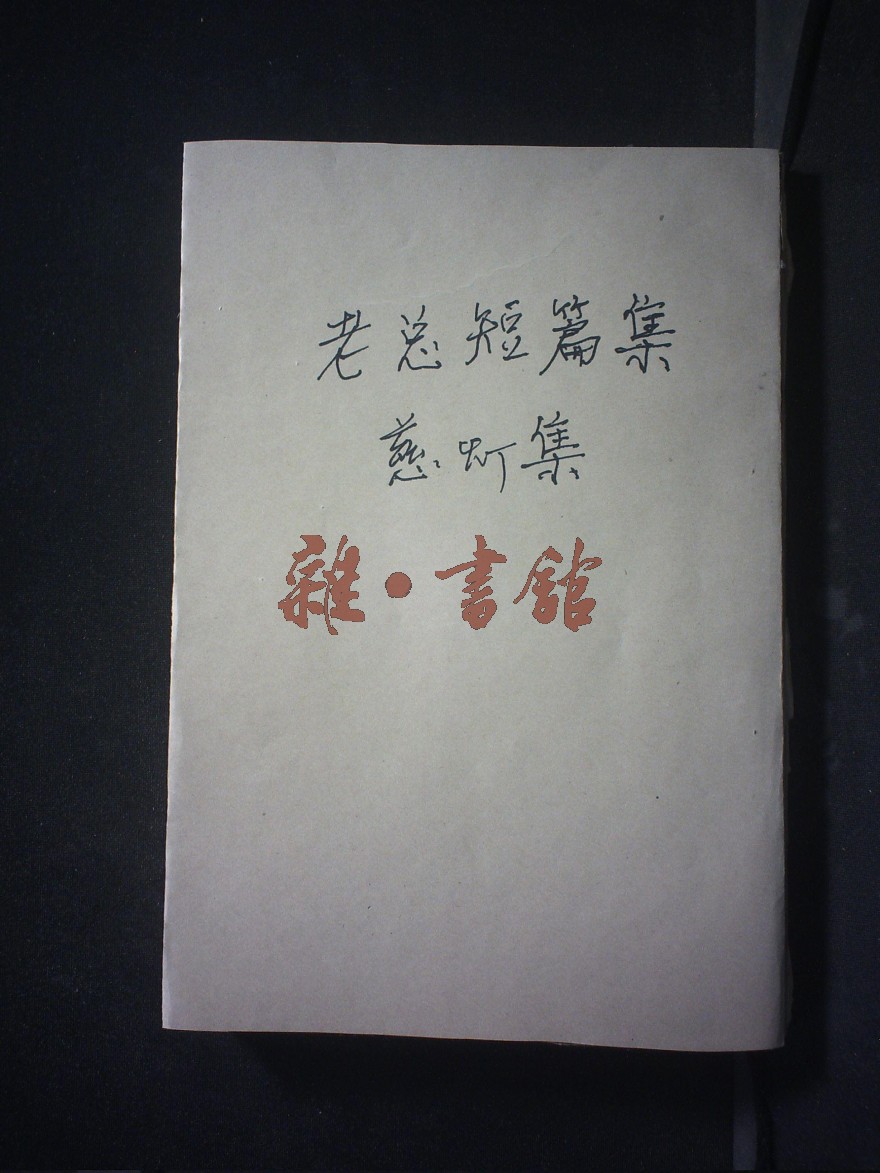 老总短篇集
慈灯集
雜•書館